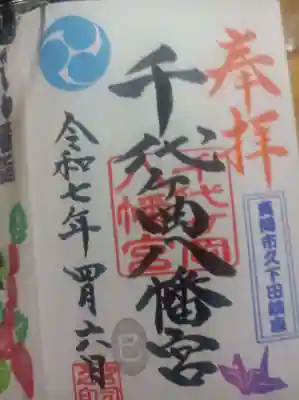 奉拝
眞岡市久下田鎮座
千代ヶ岡八幡宮
千代ヶ岡
八幡宮
巳
令和七年 四月六日